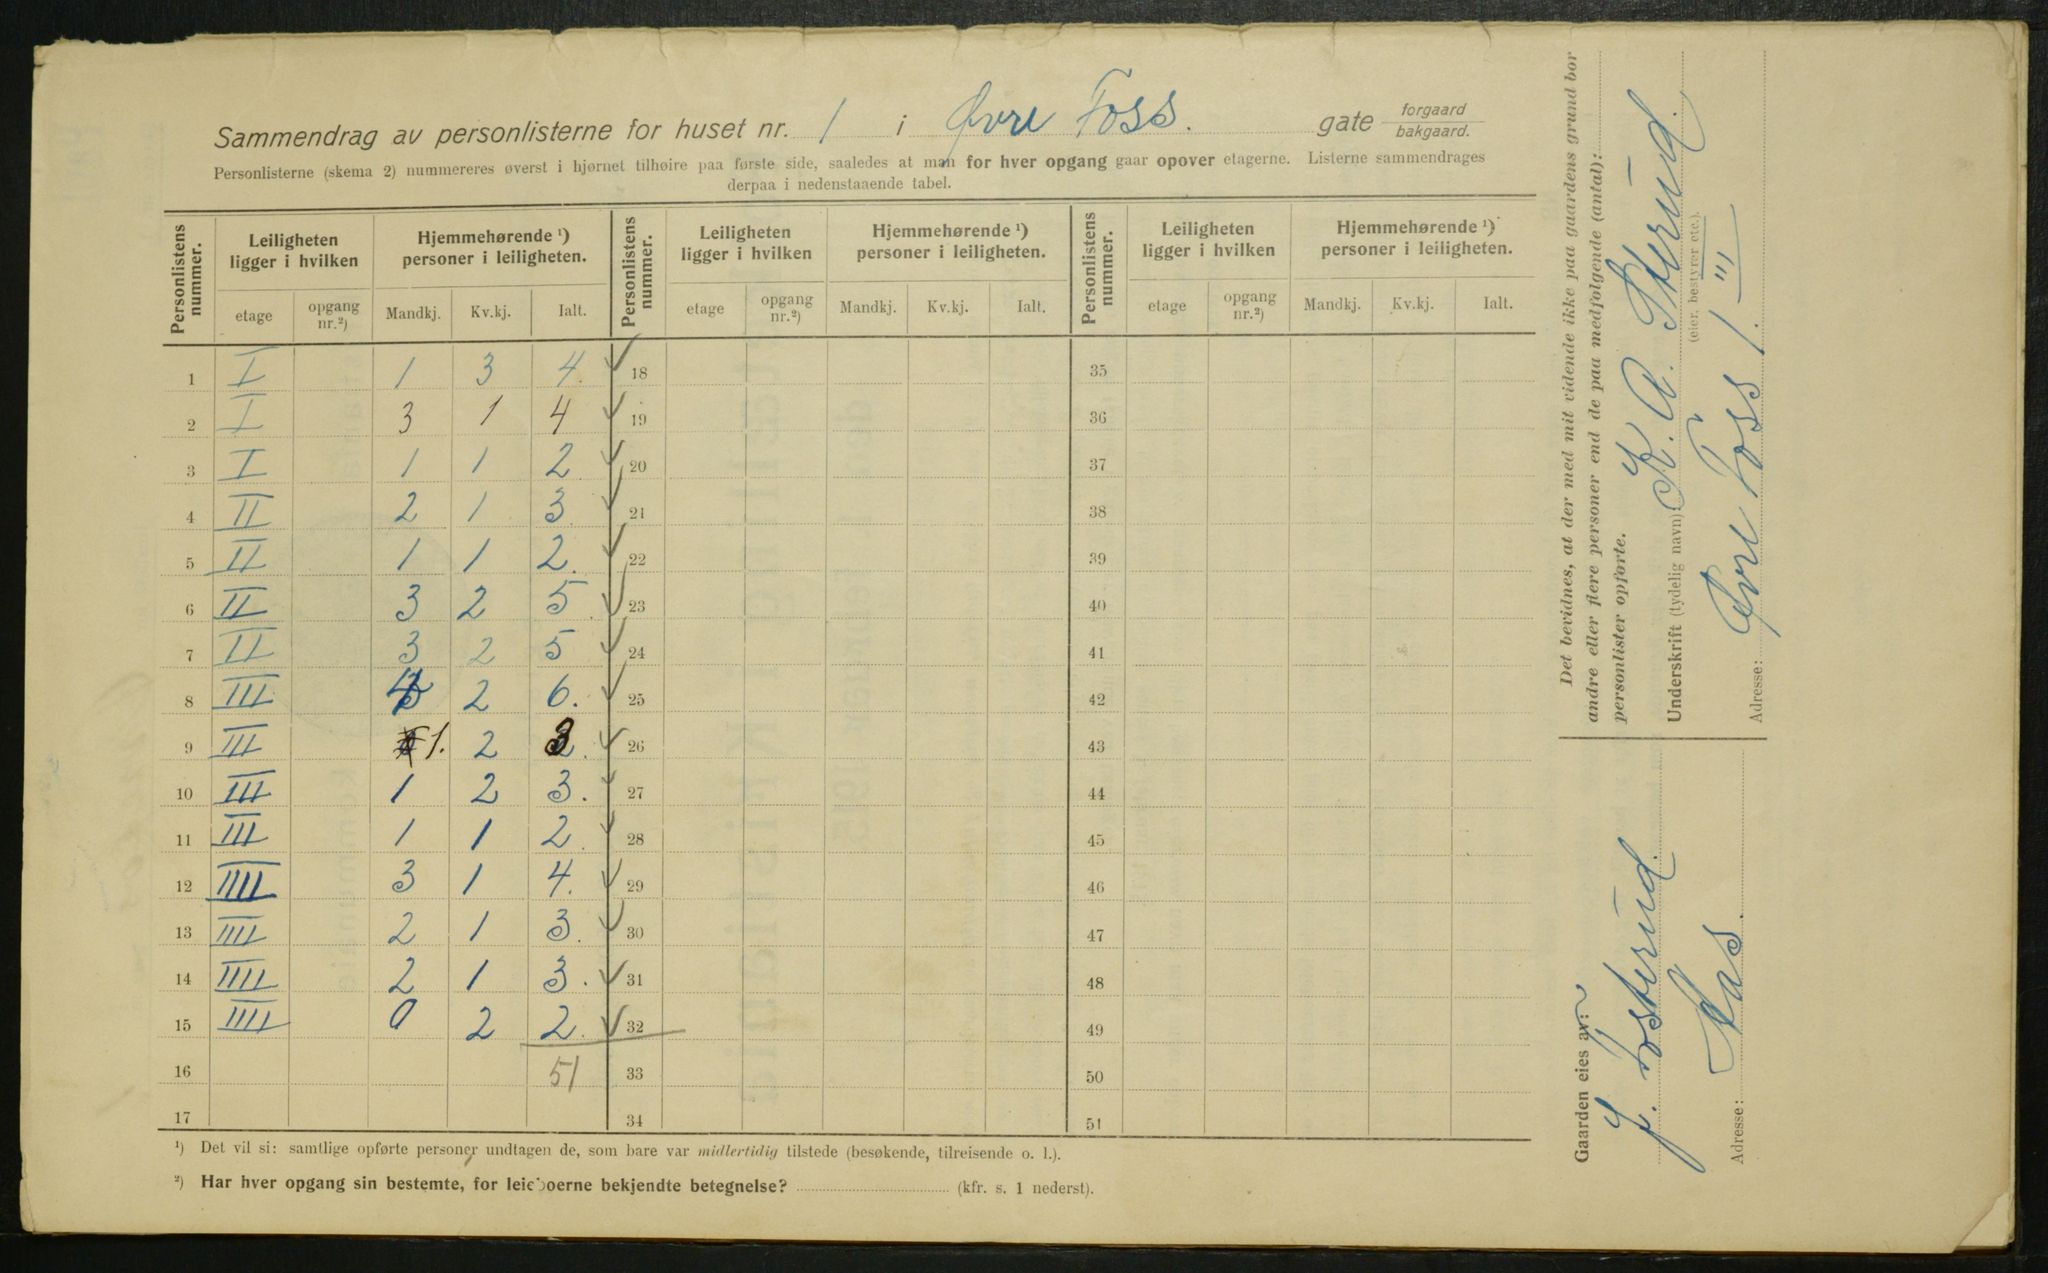 Sammendrag av personlisterne for huset nr. 1 i Øvre Foss. gate forgaard bakgaard.
Personlisterne (skema 2) nummereres øverst i hjørnet tilhøire paa første side, saaledes at man for hver opgang gaar opover etagerne. Listerne sammendrages
derpaa i nedenstaaende tabel.
Personlistens nummer. Leiligheten ligger i hvilken Hjemmehørende ¹) personer i leiligheten. Personlistens nummer. Leiligheten ligger i hvilken Hjemmehørende ¹) personer i leiligheten. Personlistens nummer. Leiligheten ligger i hvilken Hjemmehørende ¹) personer i leiligheten.
etage opgang nr.²) Mandkj. Kv.kj. Ialt. etage opgang nr.²) Mandkj. Kv.kj. Ialt. etage opgang nr.²) Mandkj. Kv.kj. Ialt.
1 I 1 3 4 18 35
2 I 3 1 4 19 36
3 I 1 1 2 20 37
4 II 2 1 3 21 38
5 II 1 1 2. 22 39
6 II 3 2 5 23 40
7 II 3 2 5 24 41
8 III 4 2 6. 25 42
9 III 1. 2 3 26 43
10 III 1 2 3. 27 44
11 III 1 1 2. 28 45
12 IIII 3 1 4. 29 46
13 IIII 2 1 3. 30 47
14 IIII 2 1 3. 31 48
15 IIII 0 2 2. 32 49
16 51 33 50
17 34 51
¹) Det vil si: samtlige opførte personer undtagen de, som bare var midlertidig tilstede (besøkende, tilreisende o. l.).
²) Har hver opgang sin bestemte, for leieboerne bekjendte betegnelse? (kfr. s. 1 nederst).
Det bevidnes, at der med mit vidende ikke paa gaardens grund bor
andre eller flere personer end de paa medfølgende (antal):
personlister opførte.
Underskrift (tydelig navn): K. A.
(eier, bestyrer etc.).
Adresse: Øvre Foss 1. III
Gaarden eies av:
J.
Adresse: Aas.